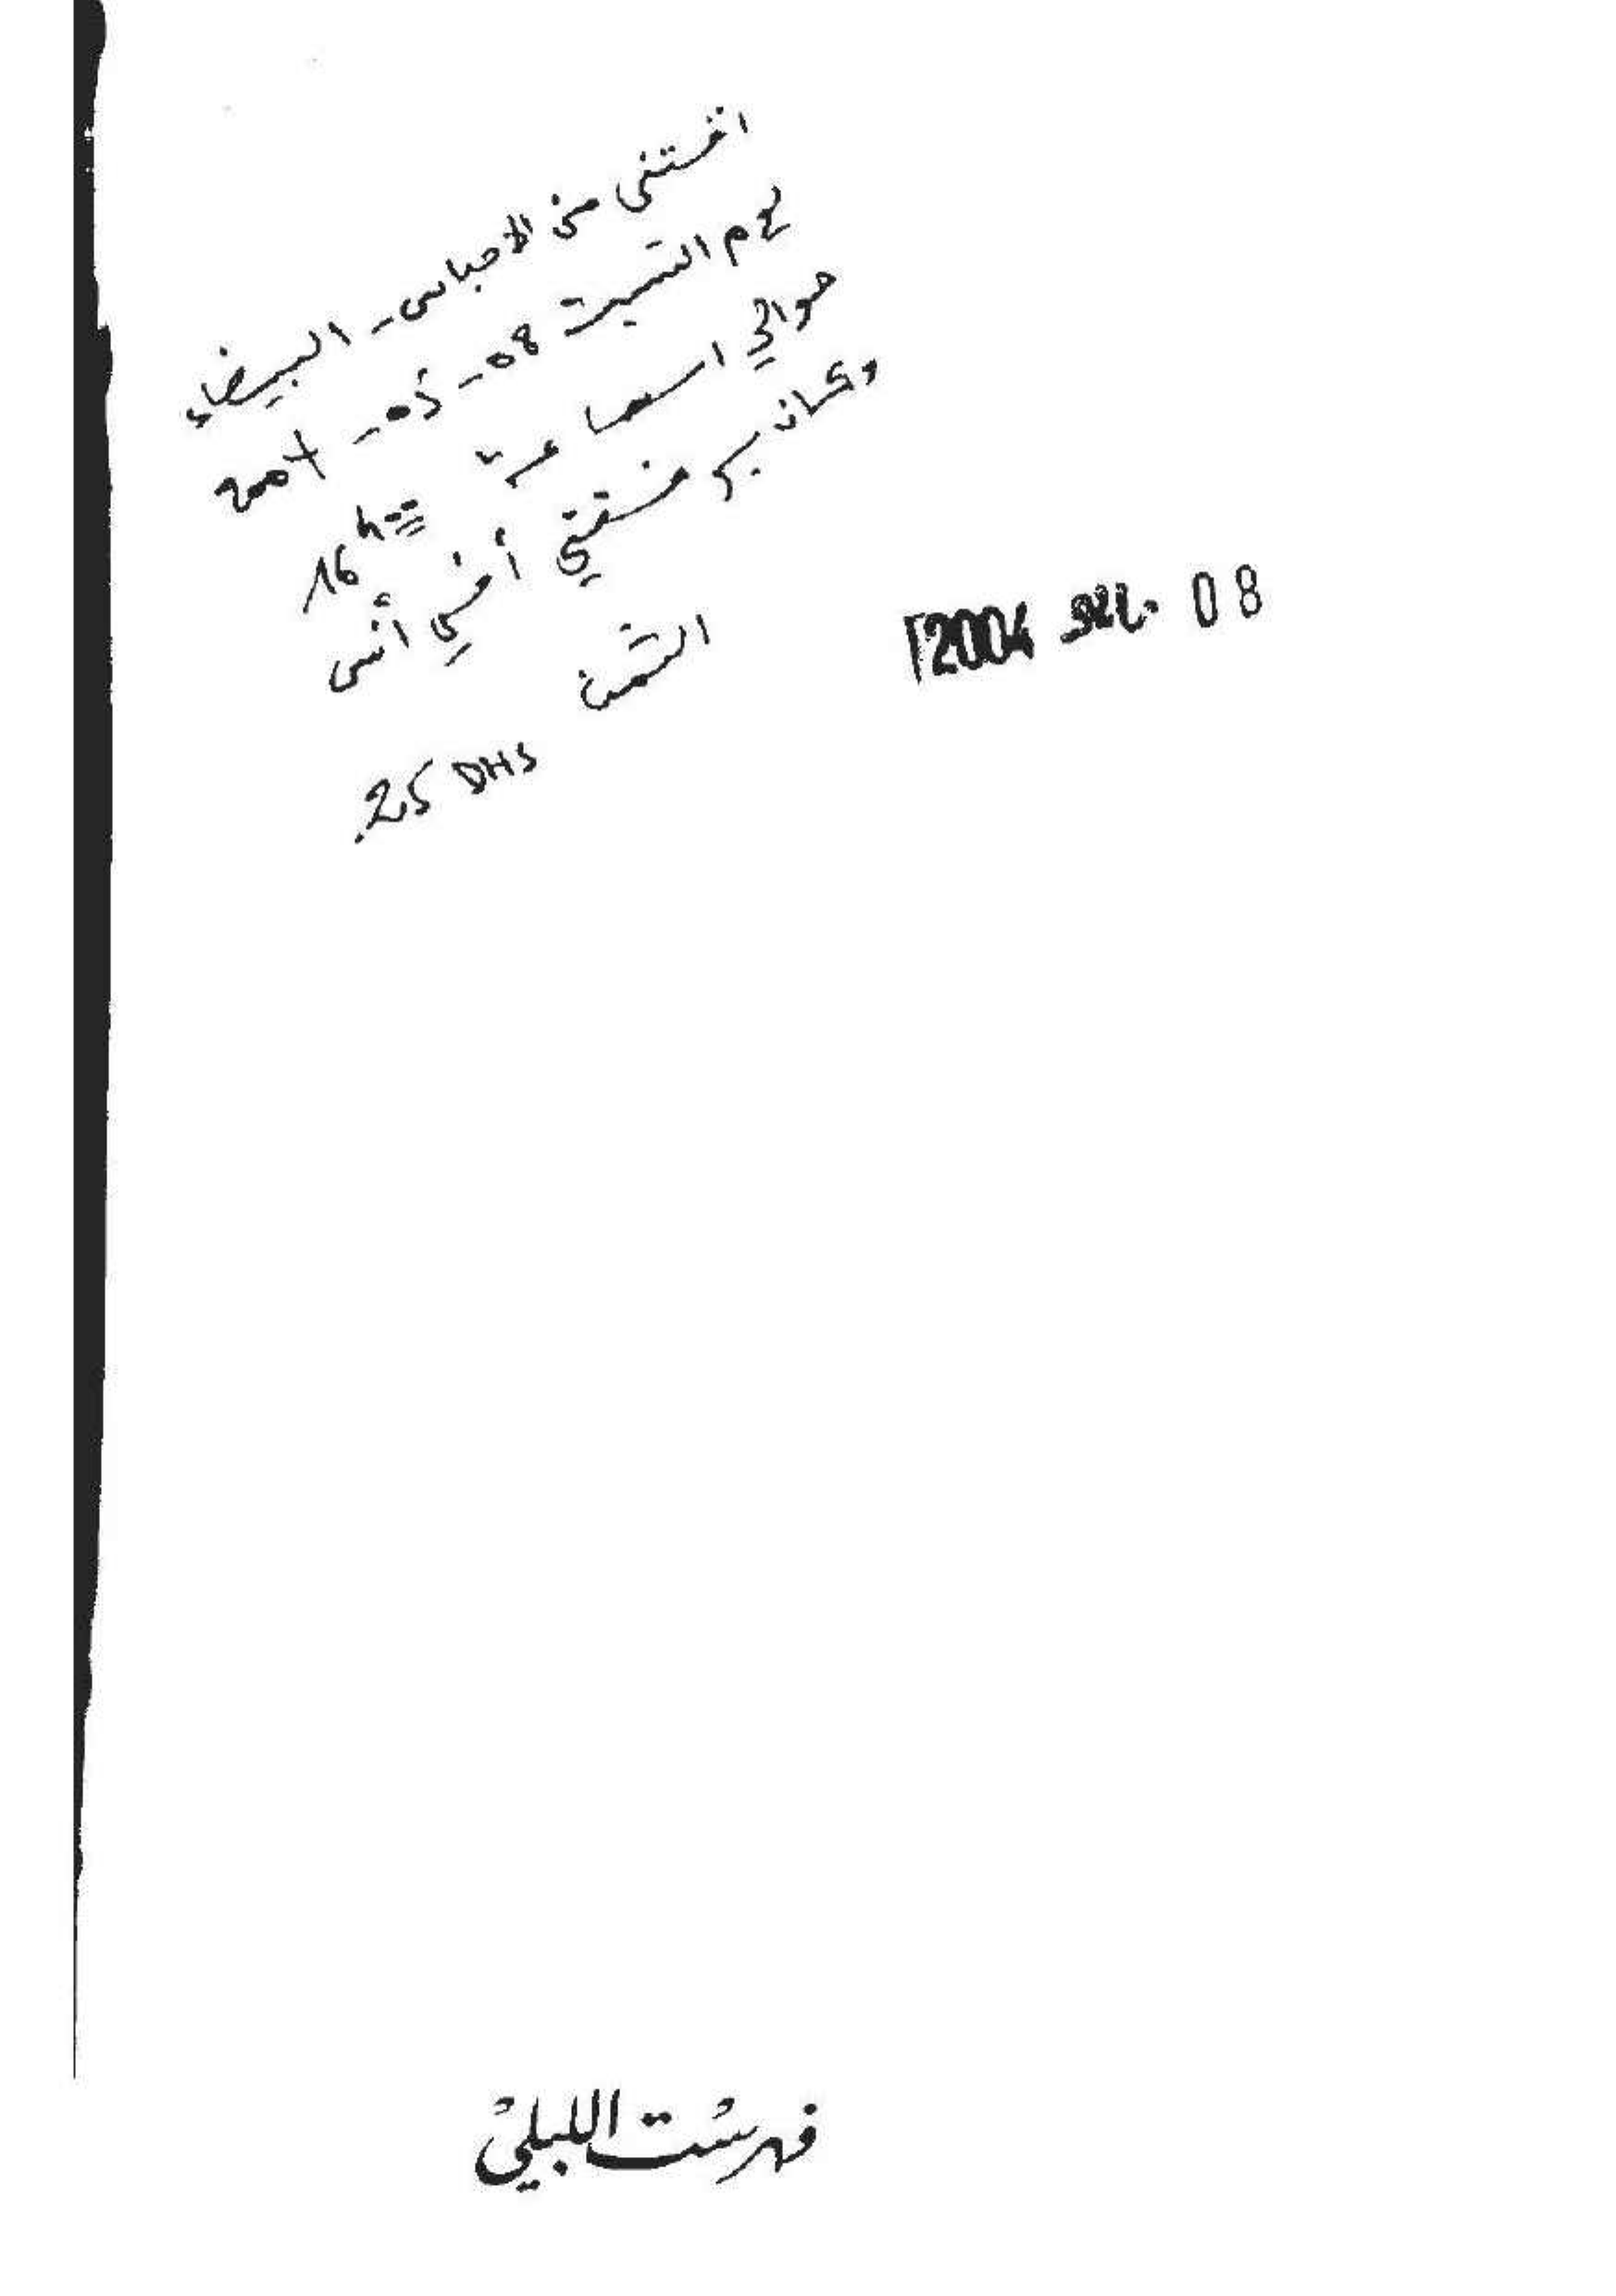 اقتنى من الاحباس - البيضاء
يوم السبت 08 - 05 - 2004
حوالي الساعة 16h
وكان برفقتي أخي أنس
الثمن
25 DHS
08 ماي 2004
فهرست اللبلي